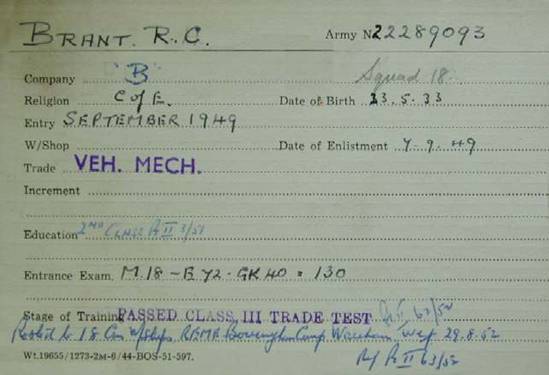 BRANT. R. C. Army No 22289093
Company "B" Squad 18.
Religion C of E. Date of Birth 23.5.33
Entry SEPTEMBER 1949
W/Shop Date of Enlistment 7.9.49
Trade VEH. MECH.
Increment
Education 2ND CLASS Pt II 3/51
Entrance Exam. M.18 - E 72 - GK 40 = 130
Stage of Training PASSED CLASS, III TRADE TEST Pt II 63/52
Posted to 18 Con W/Shops REME Bovington Camp Wareham wef 29.8.52
Pt II 63/52
Wt.19655/1273-2M-6/44-BOS-51-597.